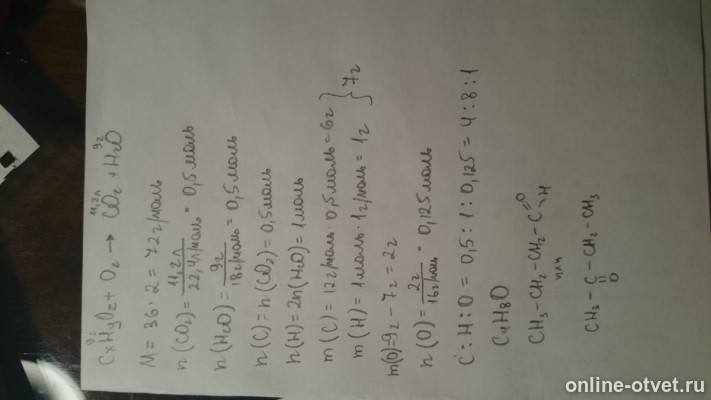 9г 11,2л 9г
CxHyOz + O2 → CO2 + H2O
M = 36·2 = 72г/моль
n(CO2) = 11,2л / 22,4л/моль = 0,5моль
n(H2O) = 9г / 18г/моль = 0,5моль
n(C) = n(CO2) = 0,5моль
n(H) = 2n(H2O) = 1моль
m(C) = 12г/моль · 0,5моль = 6г
m(H) = 1моль · 1г/моль = 1г } 7г
m(O) = 9г - 7г = 2г
n(O) = 2г / 16г/моль = 0,125моль
C : H : O = 0,5 : 1 : 0,125 = 4 : 8 : 1
C4H8O
CH3-CH2-CH2-C=O-H
или
CH3-C-CH2-CH3
=O
online-otvet.ru